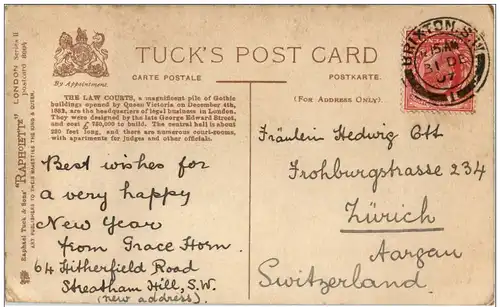 TUCK'S POST CARD
By Appointment.
CARTE POSTALE
POSTKARTE.
(FOR ADDRESS ONLY).
THE LAW COURTS, a magnificent pile of Gothic
buildings opened by Queen Victoria on December 4th,
1882, are the headquarters of legal business in London.
They were designed by the late George Edward Street,
and cost £ 750,000 to build. The central hall is about
230 feet long, and there are numerous court-rooms,
with apartments for judges and other officials.
Raphael Tuck & Sons' "RAPHOLETTE" LONDON Series
ART PUBLISHERS TO THEIR MAJESTIES THE KING & QUEEN.
BRIXTON. S.W.
15 AM
31 DE
07
Best wishes for
a very happy
New Year
from Grace Horn.
64 Hitherfield Road
Streatham Hill, S.W.
(new address)
Fräulein Hedwig Ott
Frohburgstrasse 234
Zürich
Aargau
Switzerland.